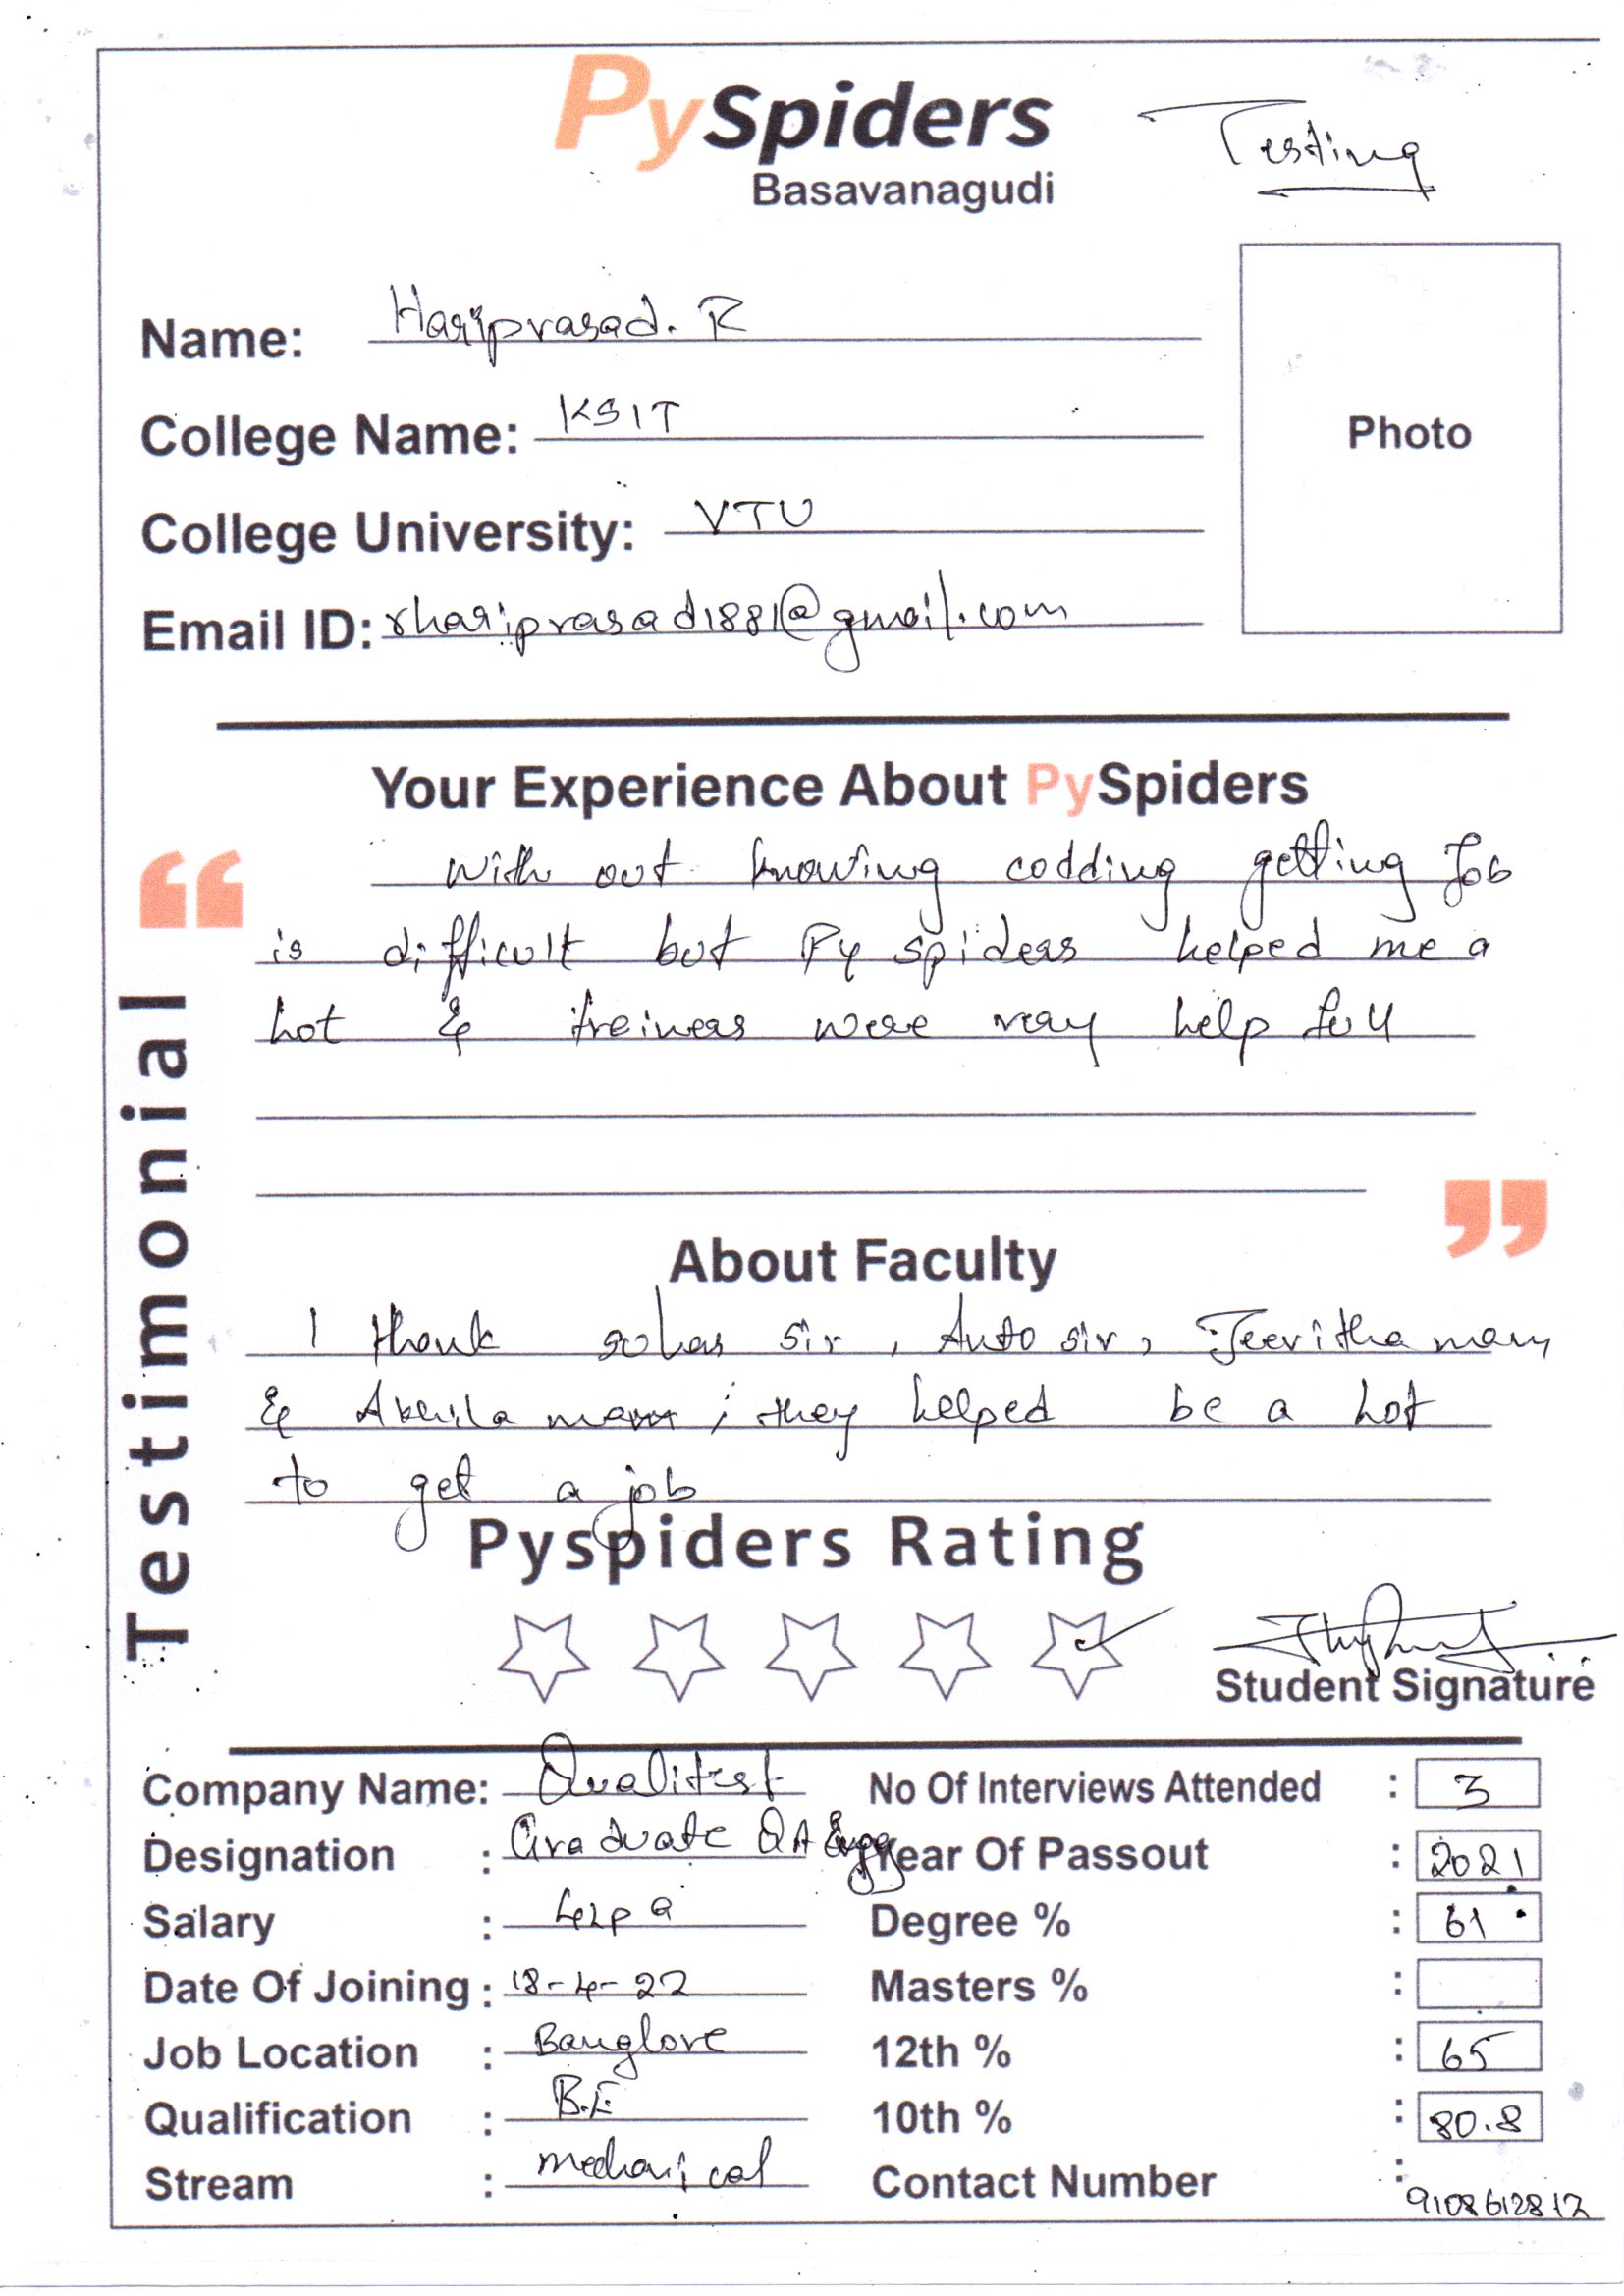 PySpiders
Basavanagudi
Testing
Name: Hariprasad. R
College Name: KSIT
Photo
College University: VTU
Email ID: rhariprasad1881@gmail.com
Your Experience About PySpiders
“
With out knowing codding getting Job
is difficult but Py spiders helped me a
lot & treiners were very help full
”
Testimonial
About Faculty
I thank suhas sir, Auto sir, Jeevitha mam
& Akhila mam; they helped be a lot
to get a job
Pyspiders Rating
Student Signature
Company Name: Qualitest
No Of Interviews Attended : 3
Designation : Graduate QA Engg
Year Of Passout : 2021
Salary : 4lpa
Degree % : 61
Date Of Joining : 18-4-22
Masters % :
Job Location : Banglore
12th % : 65
Qualification : B.E
10th % : 80.8
Stream : mechanical
Contact Number : 9108612812